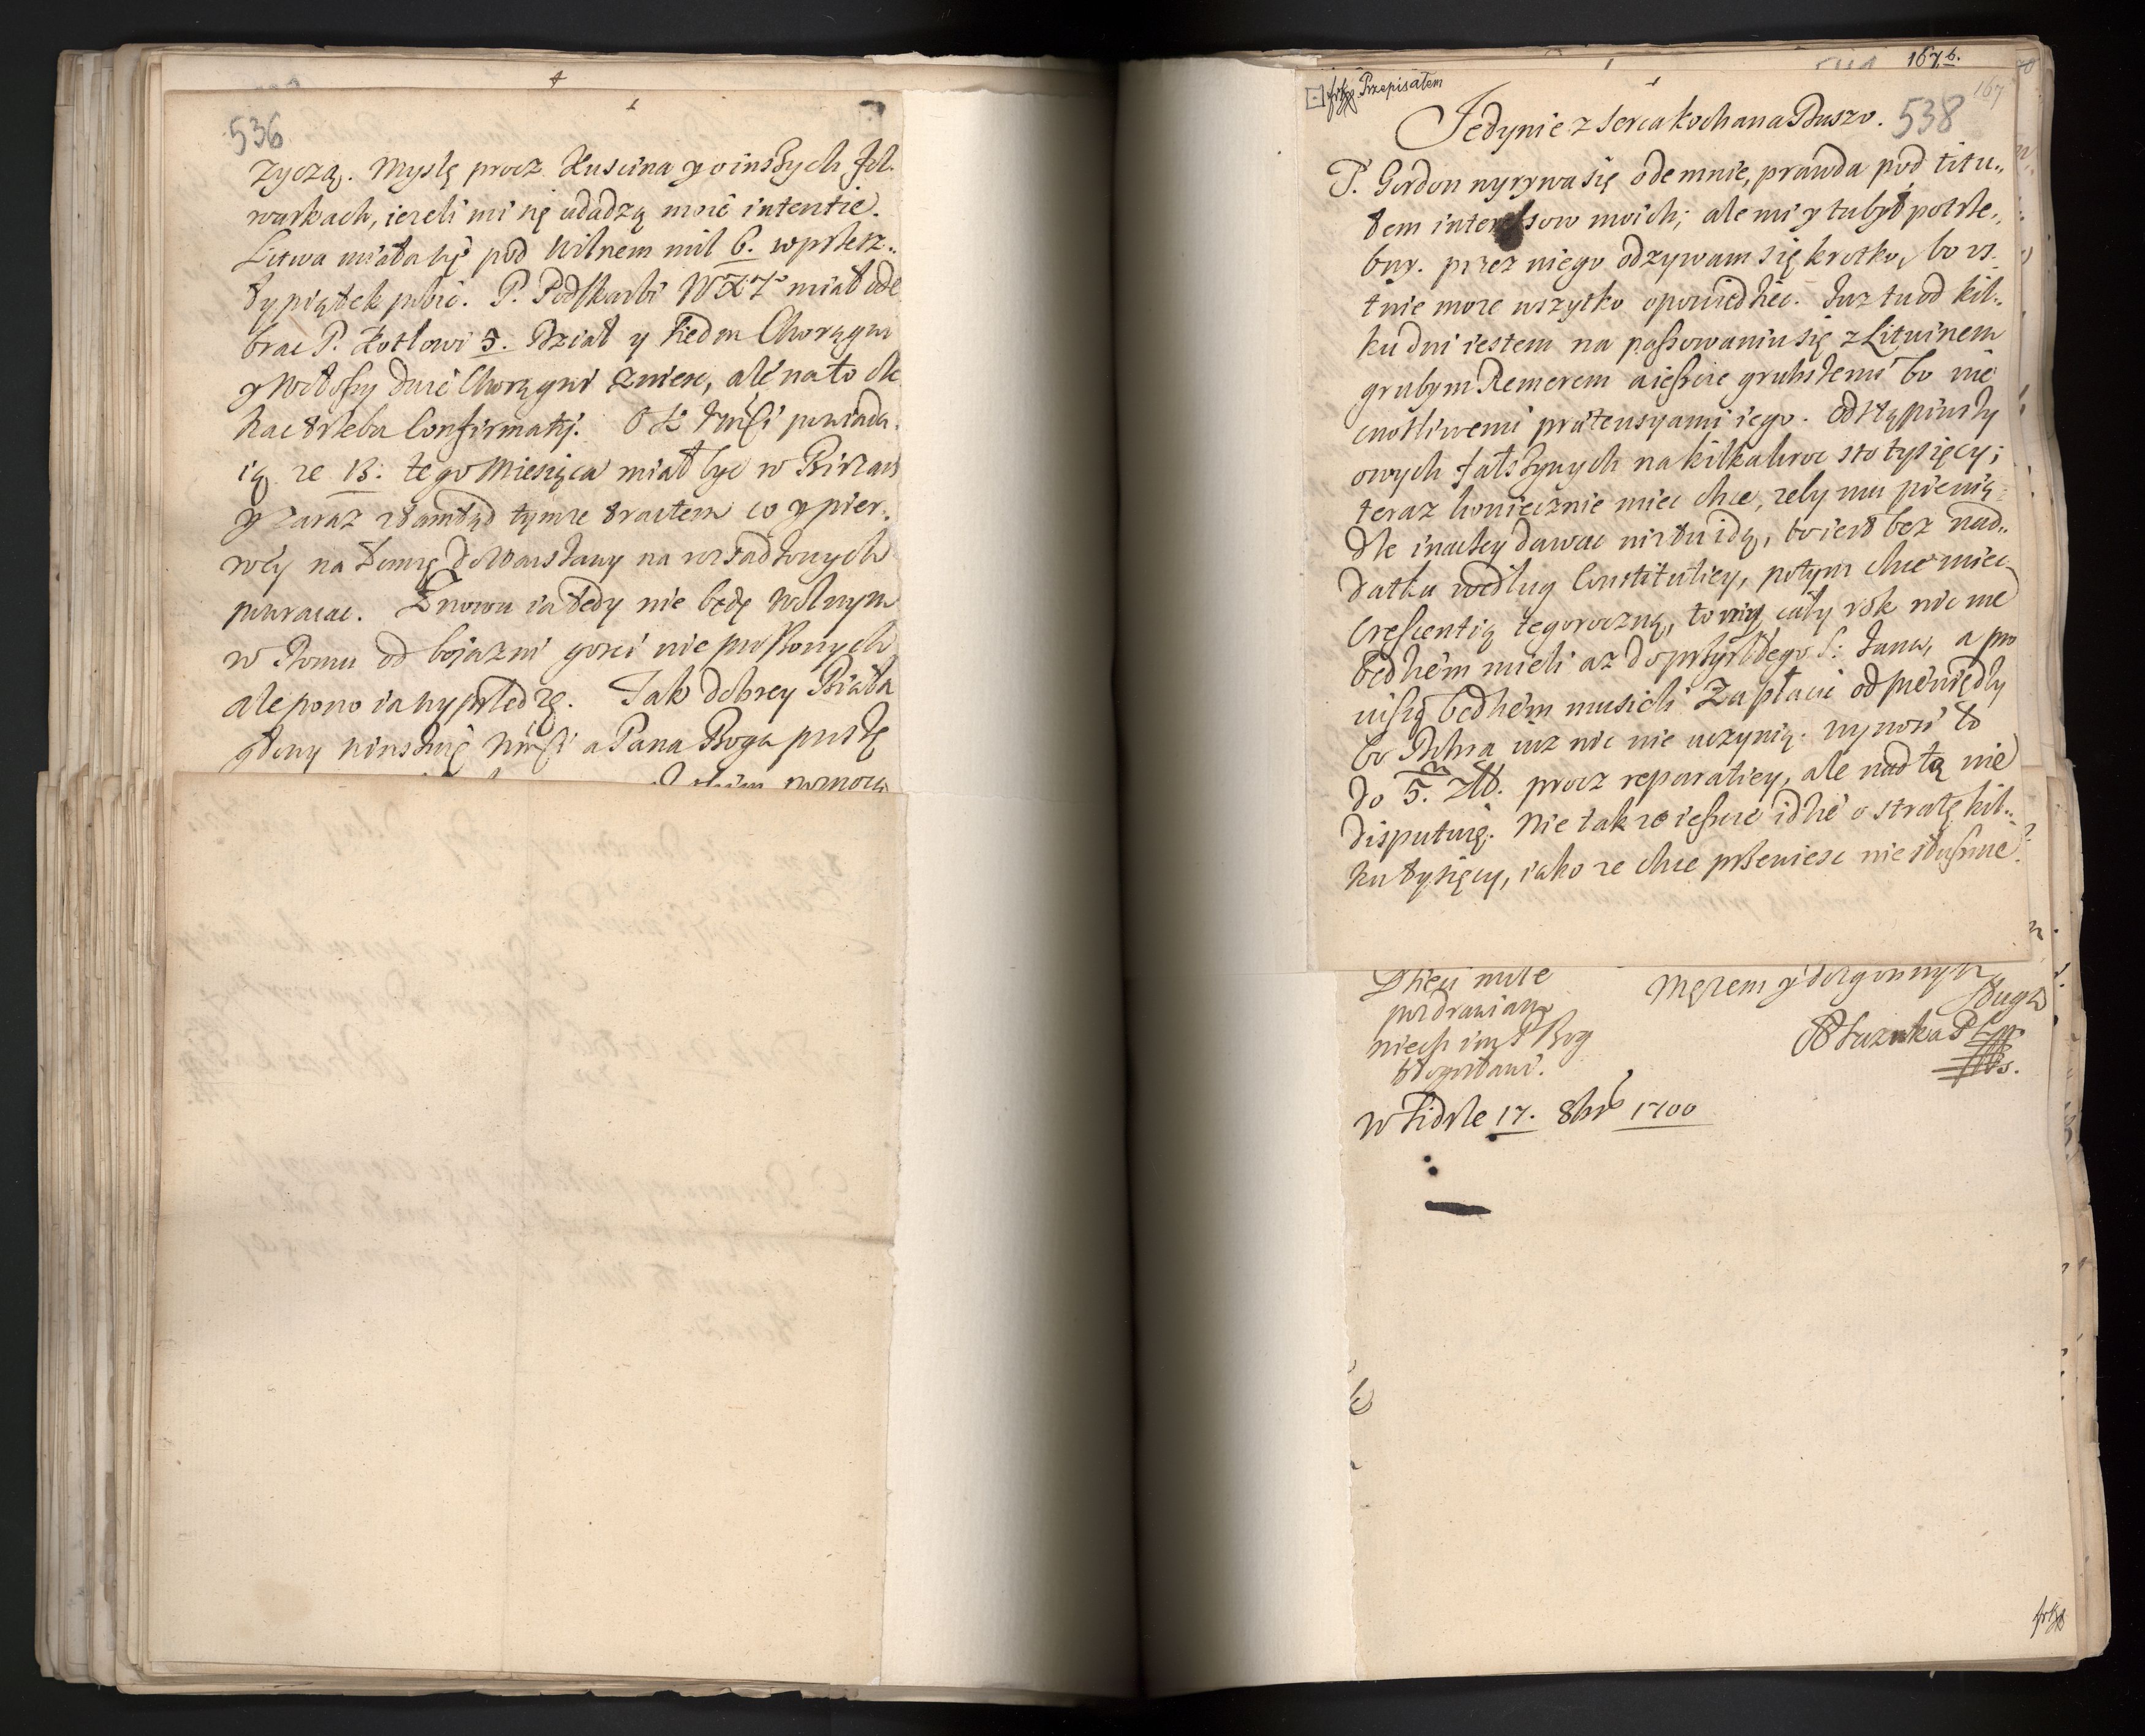 536
zyczą. Myslę procz Kuscina y o inszych fol.
warkach, iezeli mi się udadzą moie intentie.
Litwa miała się pod Wilnem mil 6. w przesz..
ły piątek pobić. P. Podskarbi WXL miał ode
brac P. Kotłowi 5. Dział y siedm Chorągwi
y Wołoszy dwie Chorągwi zniesc, ale na to cze
kac trzeba Confirmatij. O K Jmsci powiada.
ią ze 13. tego Miesiąca miał byc w Birzach
y zaraz ztamtąd tymze tractem co y pier.
wey na Łomzę do Warszawy na rozsadzonych
powracac. Znowu ia tedy nie będę wolnym
w Domu od bojazni gosci nie proszonych
ale pono ia wyprzedzę. Jak dobrey Biała
Pana Boga proszę
rozmow
167 b.
167
Przepisałem
538
Jedynie z serca kochana Duszo.
P. Gordon wyrywa się odemnie, prawda pod titu..
łem interessow moich; ale mi y tu był potrze,
bny. przez niego odzywam się krotko, bo us.
tnie moze wszytko opowiedziec. Juz tu od kil..
ku dni iestem na passowaniu się z Litwinem
grubym Remerem a ieszcze grubszemi bo nie
cnotliwemi praetensyami iego. Odstąpiwszy
owych fałszywych na kilkakroc sto tysięcy;
teraz koniecznie miec chce, zeby mu pienią
dze inaczey dawac niz tu idą, to iest bez nad..
datku wedlug Constitutiey, potym chce miec
Crescentią tegoroczną, to my cały rok nic nie
będziem mieli az do przyszłego S: Jana, a pro
wisią będziem musieli zapłacic od pieniędzy
bo Dobra iuz nic nie uczynią. wynosi to
do 5. m Zł. procz reparatiey, ale nad tą nie
disputuię. Nie tak ze ieszcze idzie o stratę kil..
ku tysięcy, iako ze chce przeniesc niesłuszne
Dzieci miłe
pozdrawiam
niech im P Bog
błogosławi.
Męzem y dozgonnym
sługą
w Sidrze 17. 8bris 1700